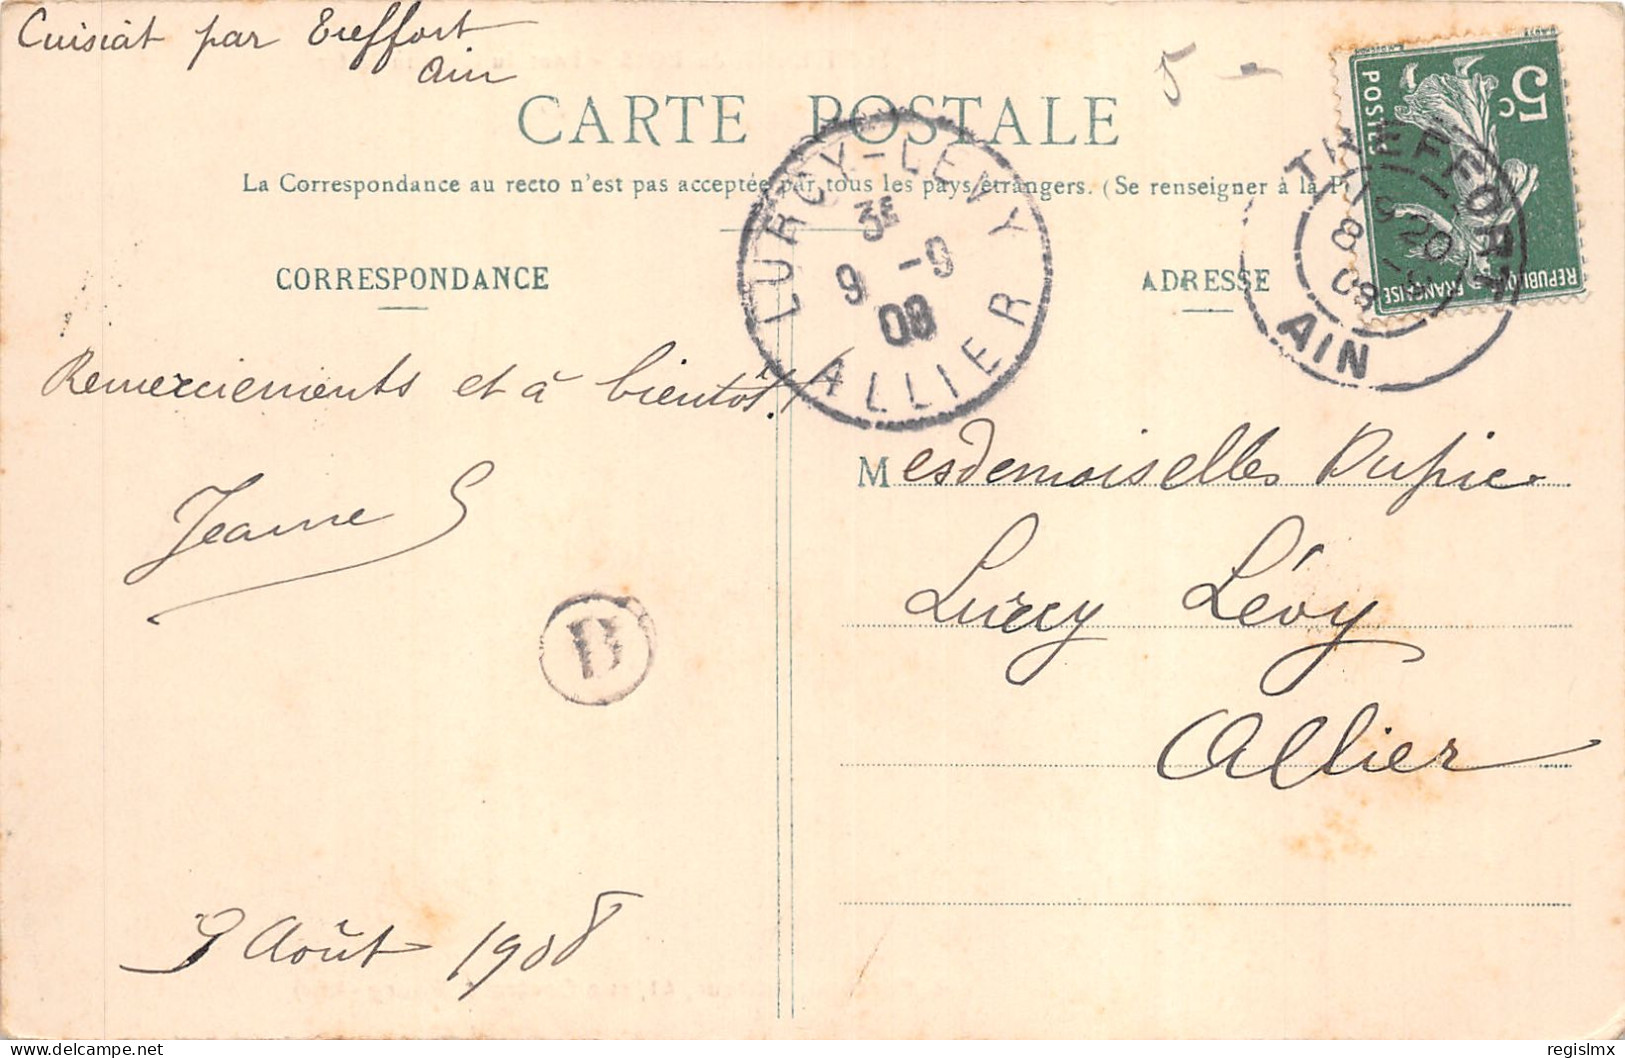 Cuisiat par Treffort
Ain
5 -
CARTE POSTALE
La Correspondance au recto n'est pas acceptée par tous les pays étrangers. (Se renseigner à la P
CORRESPONDANCE
ADRESSE
5c
POSTES
REPUBLIQUE FRANÇAISE
TREFFORT
9 20
8 -9
08
AIN
LURCY-LEVY
3E
9 -9
08
ALLIER
Remerciements et à bientôt!
Jeanne S
B
Mesdemoiselles Dupic
Lurcy Lévy
Allier
Août 1908
delcampe.net
regislmx